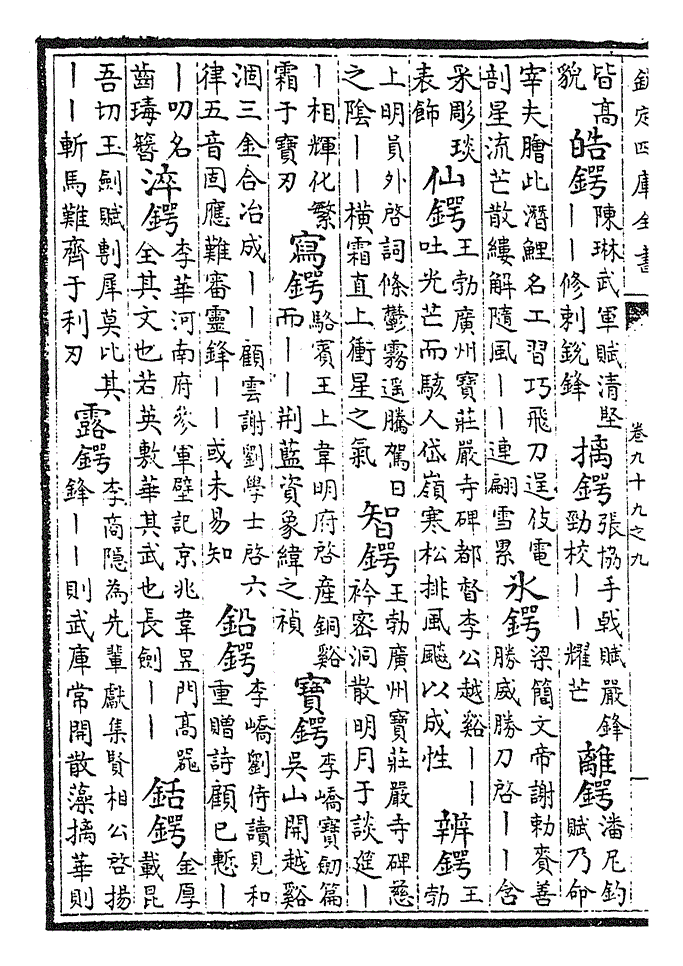 欽定四庫全書
卷九十九之九
皆高
貌
皓鍔
陳琳武軍賦清堅
——修刺銳鋒
摛鍔
張協手戟賦嚴鋒
勁校——耀芒
離鍔
潘尼釣
賦乃命
宰夫膾此潛鯉名工習巧飛刀逞伎電
剖星流芒散縷解隨風——連翩雪累
氷鍔
梁簡文帝謝勅賚善
勝威勝刀啓——含
采彫琰
表飾
仙鍔
王勃廣州寶莊嚴寺碑都督李公越谿——
吐光芒而駭人岱嶺寒松排風飈以成性
辨鍔
王
勃
上明員外啓詞條鬱霧遥騰駕日
之陰——橫霜直上衝星之氣
智鍔
王勃廣州寶莊嚴寺碑慈
衿密洞散明月于談筵—
—相輝化繁
霜于寶刃
寫鍔
駱賓王上韋明府啓産銅谿
而——荆藍資象緯之禎
寶鍔
李嶠寶劒篇
吳山開越谿
涸三金合冶成——顧雲謝劉學士啓六
律五音固應難審靈鋒——或未易知
鉛鍔
李嶠劉侍讀見和
重贈詩顧已慙—
—叨名
齒瑇簪
淬鍔
李華河南府參軍壁記京兆韋昱門高器
全其文也若英敷華其武也長劍——
銛鍔
金厚
載昆
吾切玉劍賦剸犀莫比其
——斬馬難齊于利刃
露鍔
李商隱為先輩獻集賢相公啓揚
鋒——則武庫常開散藻摛華則